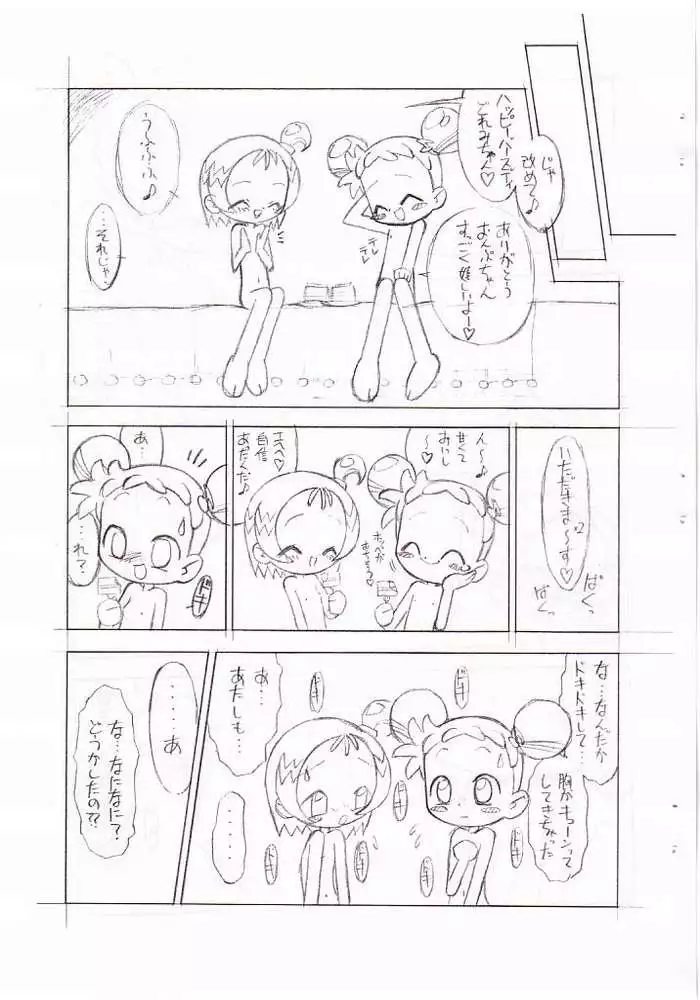 じゃ
改めて♪
ハッピーバースディ
どれみちゃん♡
ありがとう
おんぷちゃん
すっごく嬉しいよー♡
テレ
テレ
うふふふ♪
…それじゃ
いただきま〜す♡
×2
ぱくっ
ぱくっ
ん〜♪
甘くて
おいし
〜♡
エヘヘ♡
自信
あったんだ♪
あ…
…れ？
ドキ
な…なんだか
ドキドキして…
胸がキューンって
してきちゃった
ドキ
ドキ
ドキ
ドキ
ドキ
あ…
あたしも…
・・・・
・・・・あ
な…なになに？
どうかしたの？？